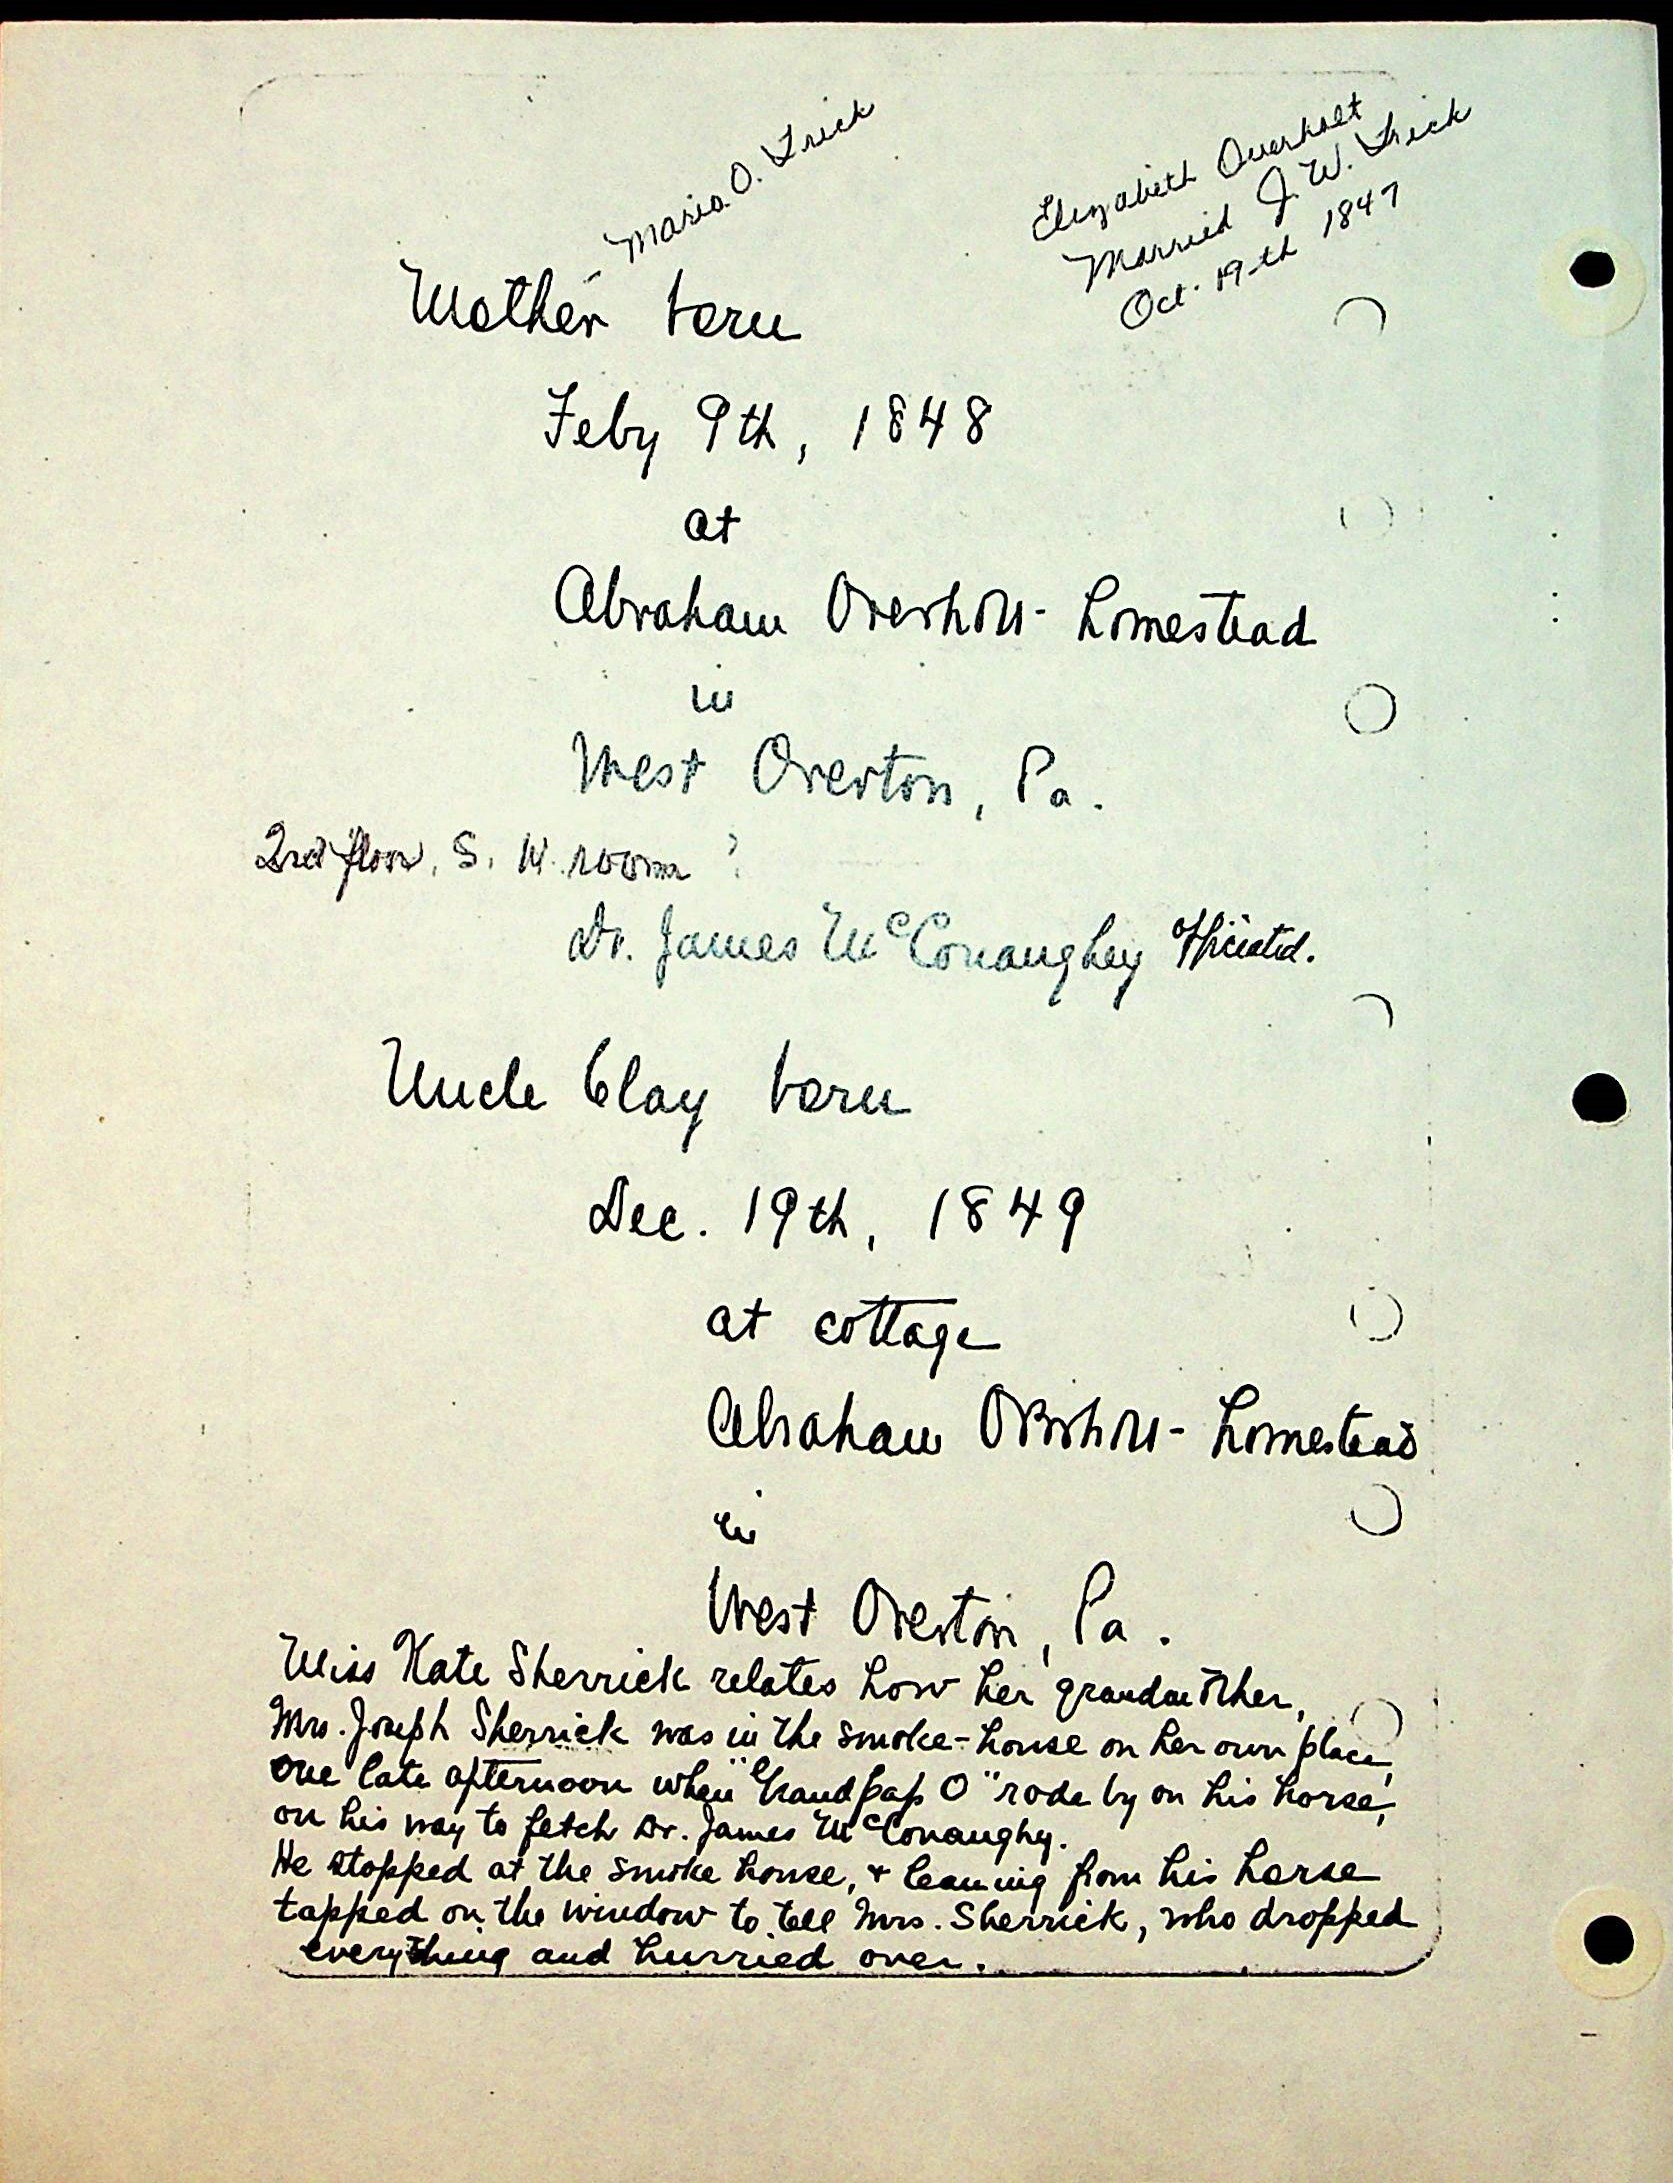 Maria O. Frick
Elizabeth Overholt
Married J. W. Frick
Oct. 19th 1847
Mother born
Feby 9th, 1848
at
Abraham Overholt homestead
in
West Overton, Pa.
2nd floor, S. W. room ?
Dr. James McConaughey officiated.
Uncle Clay born
Dec. 19th, 1849
at cottage
Abraham Overholt homestead
in
West Overton, Pa.
Miss Kate Sherrick relates how her grandmother,
Mrs. Joseph Sherrick was in the smoke-house on her own place,
one late afternoon when "Grandpap O" rode by on his horse,
on his way to fetch Dr. James McConaughy.
He stopped at the smoke house, & leaning from his horse
tapped on the window to tell Mrs. Sherrick, who dropped
everything and hurried over.